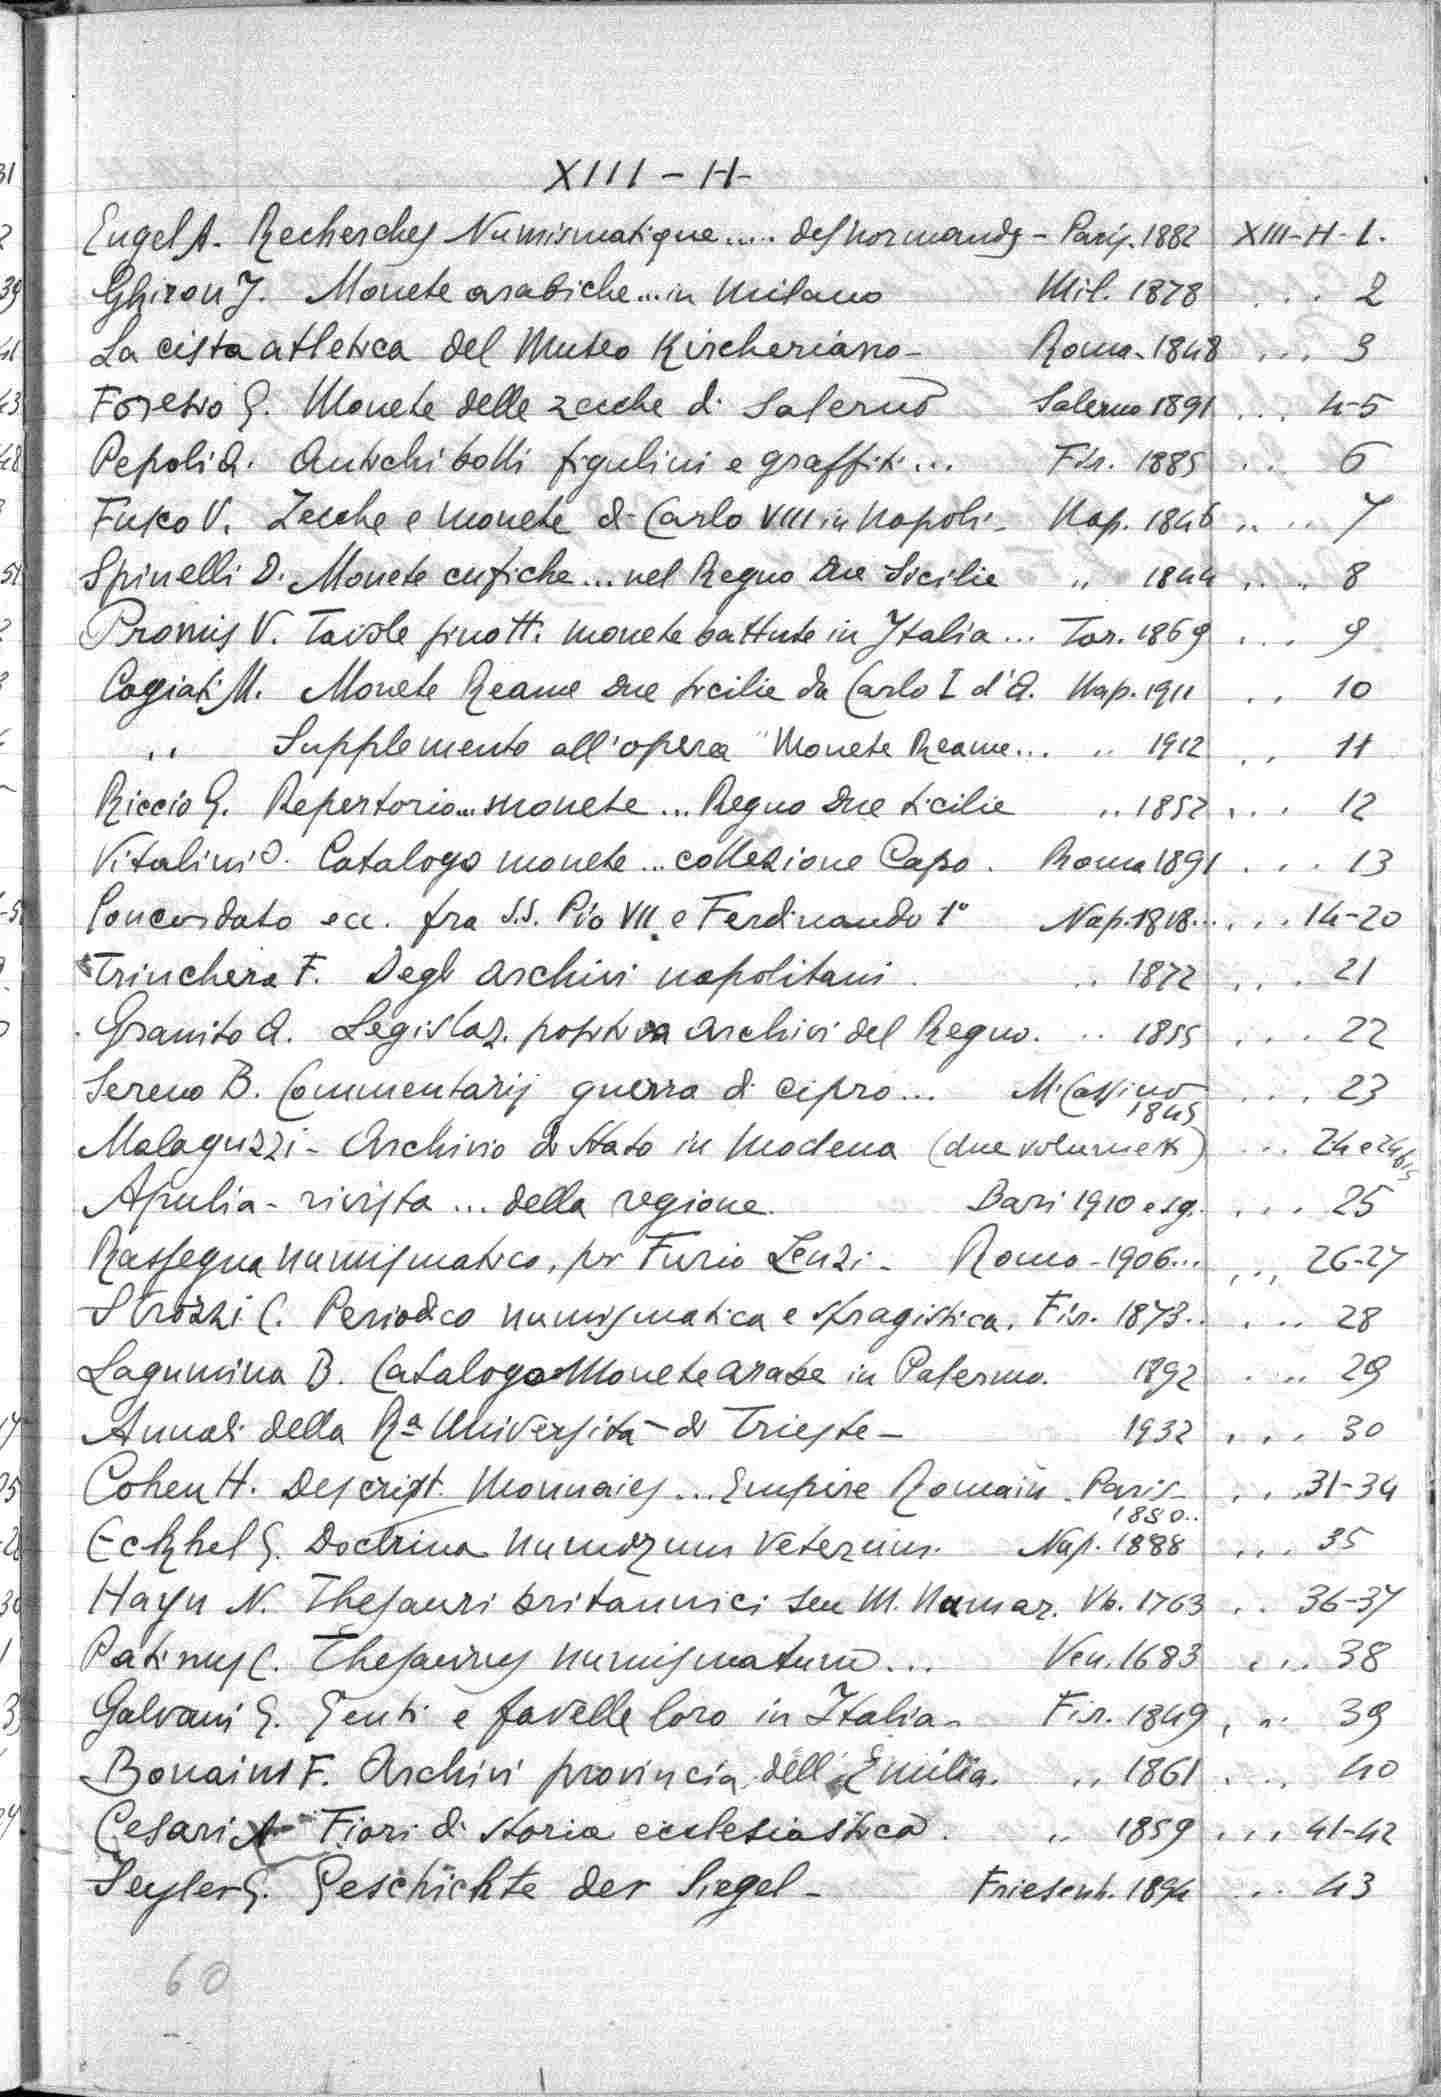 XIII - H -
Engel A. Recherches Numismatique..... des Normands - Paris. 1882 XIII-H-1.
Ghiron J. Monete arabiche... in Milano Mil. 1878 ... 2
La cista atletica del Museo Kircheriano - Roma. 1848 ... 3
Foresio G. Monete delle zecche di Salerno Salerno 1891 ... 4-5
Pepoli A. Antichi bolli figulini e graffiti... Fir. 1885 ... 6
Fusco V. Zecche e monete di Carlo VIII in Napoli - Nap. 1846 .... 7
Spinelli D. Monete cufiche... nel Regno Due Sicilie " 1844 .... 8
Promis V. Tavole sinott. monete battute in Italia... Tor. 1869 ... 9
Cagiati M. Monete Reame Due Sicilie da Carlo I d'A. Nap. 1911 .. 10
" Supplemento all'opera "Monete Reame... " 1912 .. 11
Riccio G. Repertorio... monete... Regno Due Sicilie " 1852 ... 12
Vitalini O. Catalogo monete... collezione Capo. Roma 1891 .... 13
Concordato ecc. fra S.S. Pio VII e Ferdinando 1° Nap. 1818... ... 14-20
Trinchera F. Degli archivi napolitani. " 1872 ... 21
Granito A. Legislaz. positiva archivi del Regno. " 1855 ... 22
Sereno B. Commentarij guerra di Cipro... M. Cassino 1845 ... 23
Malaguzzi - Archivio di Stato in Modena (due volumetti) ... 24 e 24bis
Apulia - rivista... della regione. Bari 1910 e sg. .... 25
Rassegna numismatica, per Furio Lenzi - Roma - 1906... .... 26-27
Strozzi C. Periodico numismatica e sfragistica. Fir. 1873.. .... 28
Lagumina B. Catalogo Monete arabe in Palermo. 1892 .... 29
Annali della Ra Università di Trieste - 1932 ... 30
Cohen H. Descript. Monnaies... Empire Romain. Paris - 1880.. ... 31-34
Eckhel G. Doctrina Numorum Veterum. Nap. 1888 ... 35
Haym N. Thesauri britannici seu M. Numar. Vb. 1763 .. 36-37
Patinus C. Thesaurus numismatum... Ven. 1683 ... 38
Galvani G. Genti e favelle loro in Italia - Fir. 1849 ... 39
Bonaini F. Archivi provincia dell'Emilia. " 1861 ... 40
Cesari A Fiori di storia ecclesiastica. " 1859 ... 41-42
Seyler G. Geschichte der Siegel - Friesenh. 1894 ... 43
60